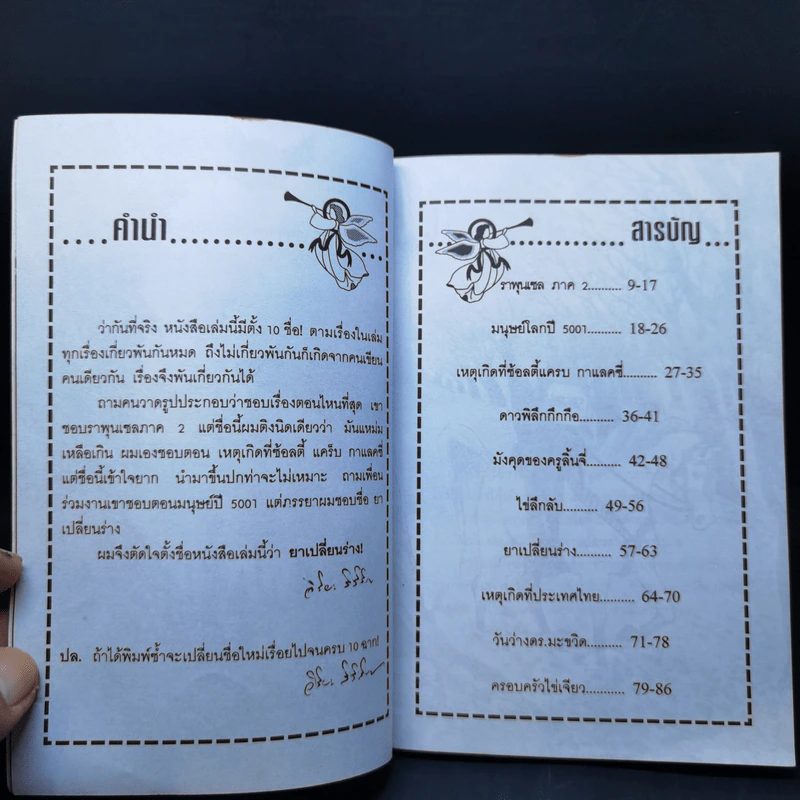 ....คำนำ................
ว่ากันที่จริง หนังสือเล่มนี้มีตั้ง 10 ชื่อ! ตามเรื่องในเล่ม
ทุกเรื่องเกี่ยวพันกันหมด ถึงไม่เกี่ยวพันกันก็เกิดจากคนเขียน
คนเดียวกัน เรื่องจึงพันเกี่ยวกันได้
ถามคนวาดรูปประกอบว่าชอบเรื่องตอนไหนที่สุด เขา
ชอบราพุนเซลภาค 2 แต่ชื่อนี้ผมติงนิดเดียวว่า มันแหม่ม
เหลือเกิน ผมเองชอบตอน เหตุเกิดที่ซ้อลตี้ แคร็บ กาแลคซี่
แต่ชื่อนี้เข้าใจยาก นำมาขึ้นปกท่าจะไม่เหมาะ ถามเพื่อน
ร่วมงานเขาชอบตอนมนุษย์ปี 5001 แต่ภรรยาผมชอบชื่อ ยา
เปลี่ยนร่าง
ผมจึงตัดใจตั้งชื่อหนังสือเล่มนี้ว่า ยาเปลี่ยนร่าง!
ปล. ถ้าได้พิมพ์ซ้ำจะเปลี่ยนชื่อใหม่เรื่อยไปจนครบ 10 ฉาก!
สารบัญ...
ราพุนเซล ภาค 2......... 9-17
มนุษย์โลกปี 5001.......... 18-26
เหตุเกิดที่ซ้อลตี้แครบ กาแลคซี่.......... 27-35
ดาวพิลึกกึกกือ.......... 36-41
มังคุดของครูลิ้นจี่.......... 42-48
ไข่ลึกลับ.......... 49-56
ยาเปลี่ยนร่าง.......... 57-63
เหตุเกิดที่ประเทศไทย.......... 64-70
วันว่างดร.มะขวิด.......... 71-78
ครอบครัวไข่เจียว.......... 79-86